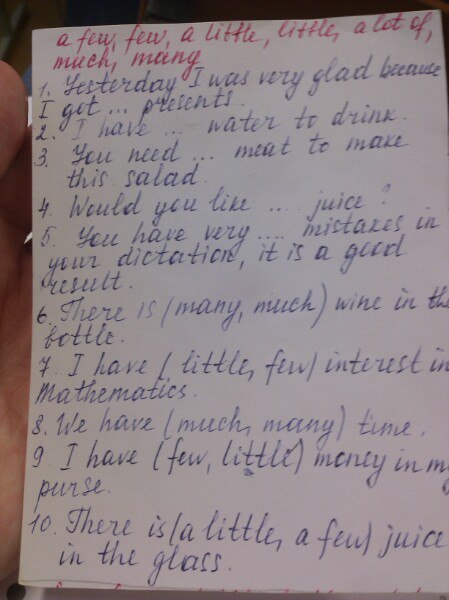 a few, few, a little, little, a lot of,
much, many
1. Yesterday I was very glad because
I got ... presents.
2. I have ... water to drink.
3. You need ... meat to make
this salad.
4. Would you like .... juice?
5. You have very .... mistakes in
your dictation, it is a good
result.
6. There is (many, much) wine in the
bottle.
7. I have (little, few) interest in
Mathematics.
8. We have (much, many) time.
9. I have (few, little) money in my
purse.
10. There is (a little, a few) juice
in the glass.